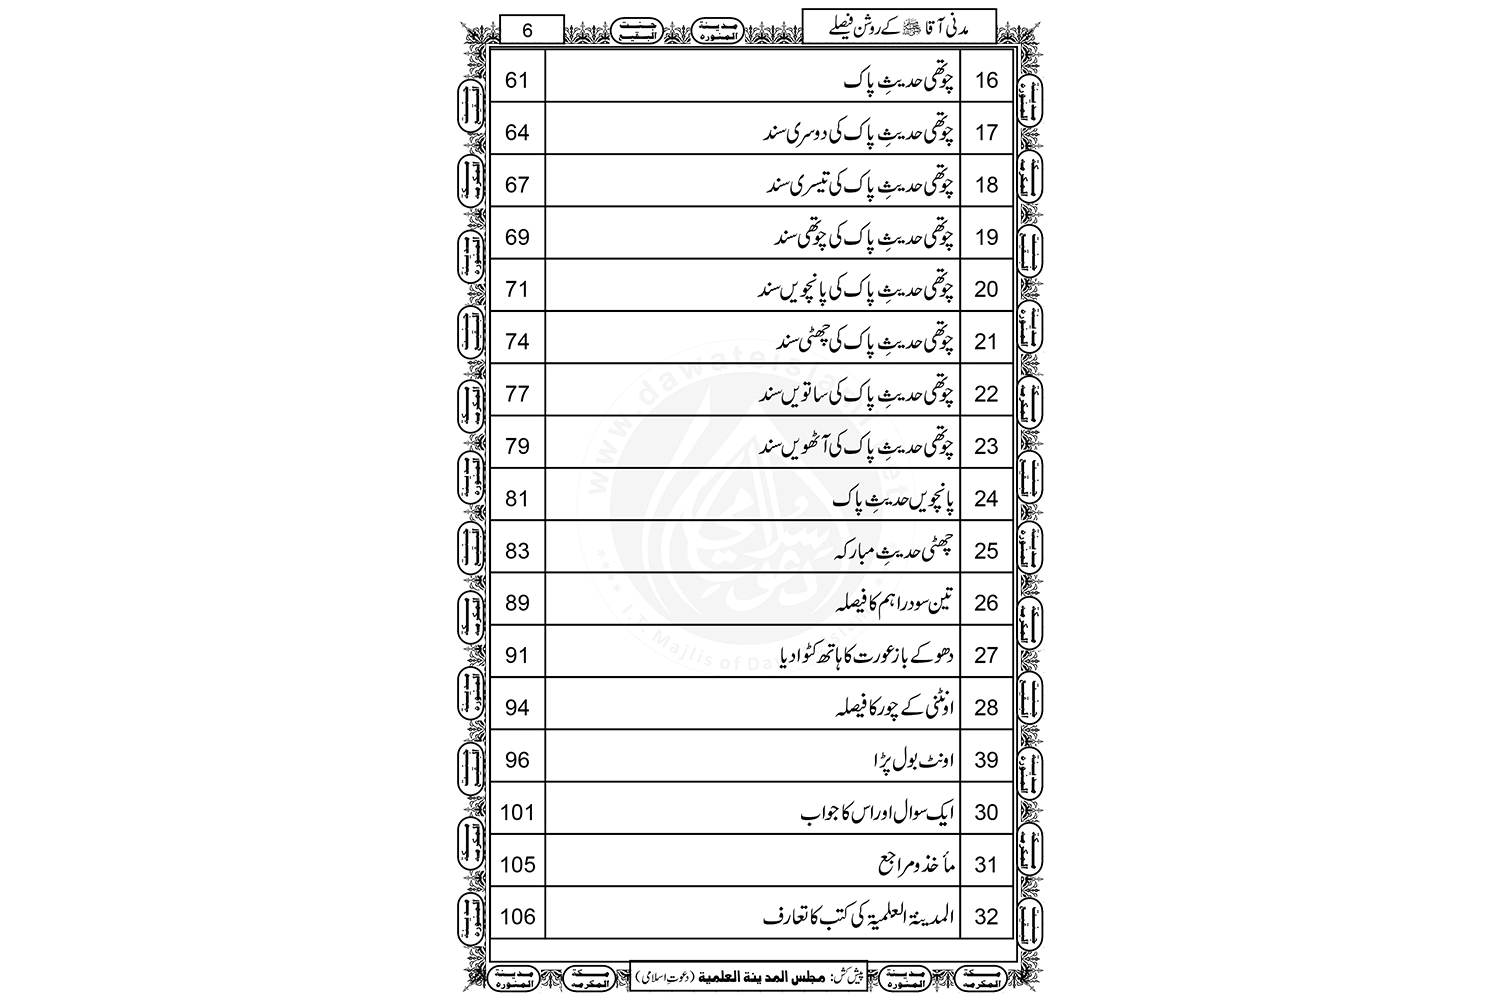 مدنی آقا ﷺ کے روشن فیصلے 6
16 چوتھی حدیثِ پاک 61
17 چوتھی حدیثِ پاک کی دوسری سند 64
18 چوتھی حدیثِ پاک کی تیسری سند 67
19 چوتھی حدیثِ پاک کی چوتھی سند 69
20 چوتھی حدیثِ پاک کی پانچویں سند 71
21 چوتھی حدیثِ پاک کی چھٹی سند 74
22 چوتھی حدیثِ پاک کی ساتویں سند 77
23 چوتھی حدیثِ پاک کی آٹھویں سند 79
24 پانچویں حدیثِ پاک 81
25 چھٹی حدیثِ مبارکہ 83
26 تین سو دراہم کا فیصلہ 89
27 دھوکے باز عورت کا ہاتھ کٹوا دیا 91
28 اونٹنی کے چور کا فیصلہ 94
39 اونٹ بول پڑا 96
30 ایک سوال اور اس کا جواب 101
31 مأخذ و مراجع 105
32 المدینۃ العلمیۃ کی کتب کا تعارف 106
پیش کش: مجلس المدينة العلمية (دعوتِ اسلامی)